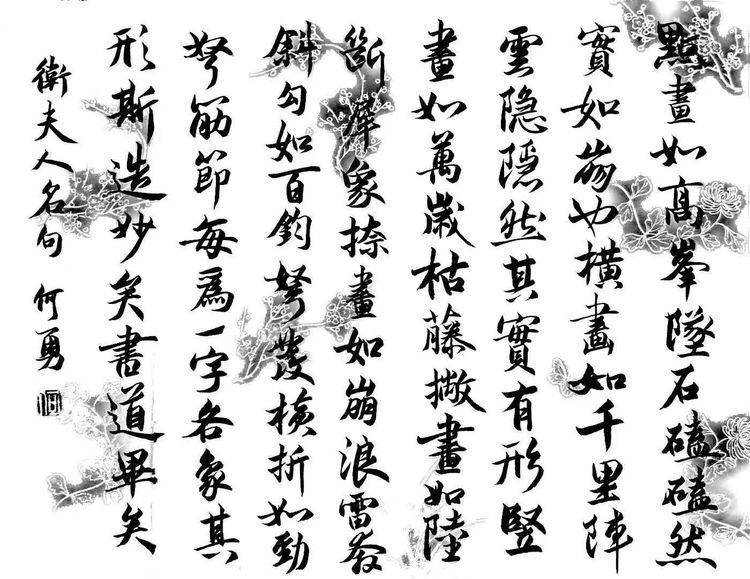 點畫如高峯墜石磕磕然
實如崩也橫畫如千里陣
雲隐隱然其實有形竪
畫如萬歲枯藤撇畫如陸
斷犀象捺畫如崩浪雷奔
斜勾如百鈞弩發橫折如勁
弩筋節每爲一字各象其
形斯造妙矣書道畢矣
衛夫人名句 何勇